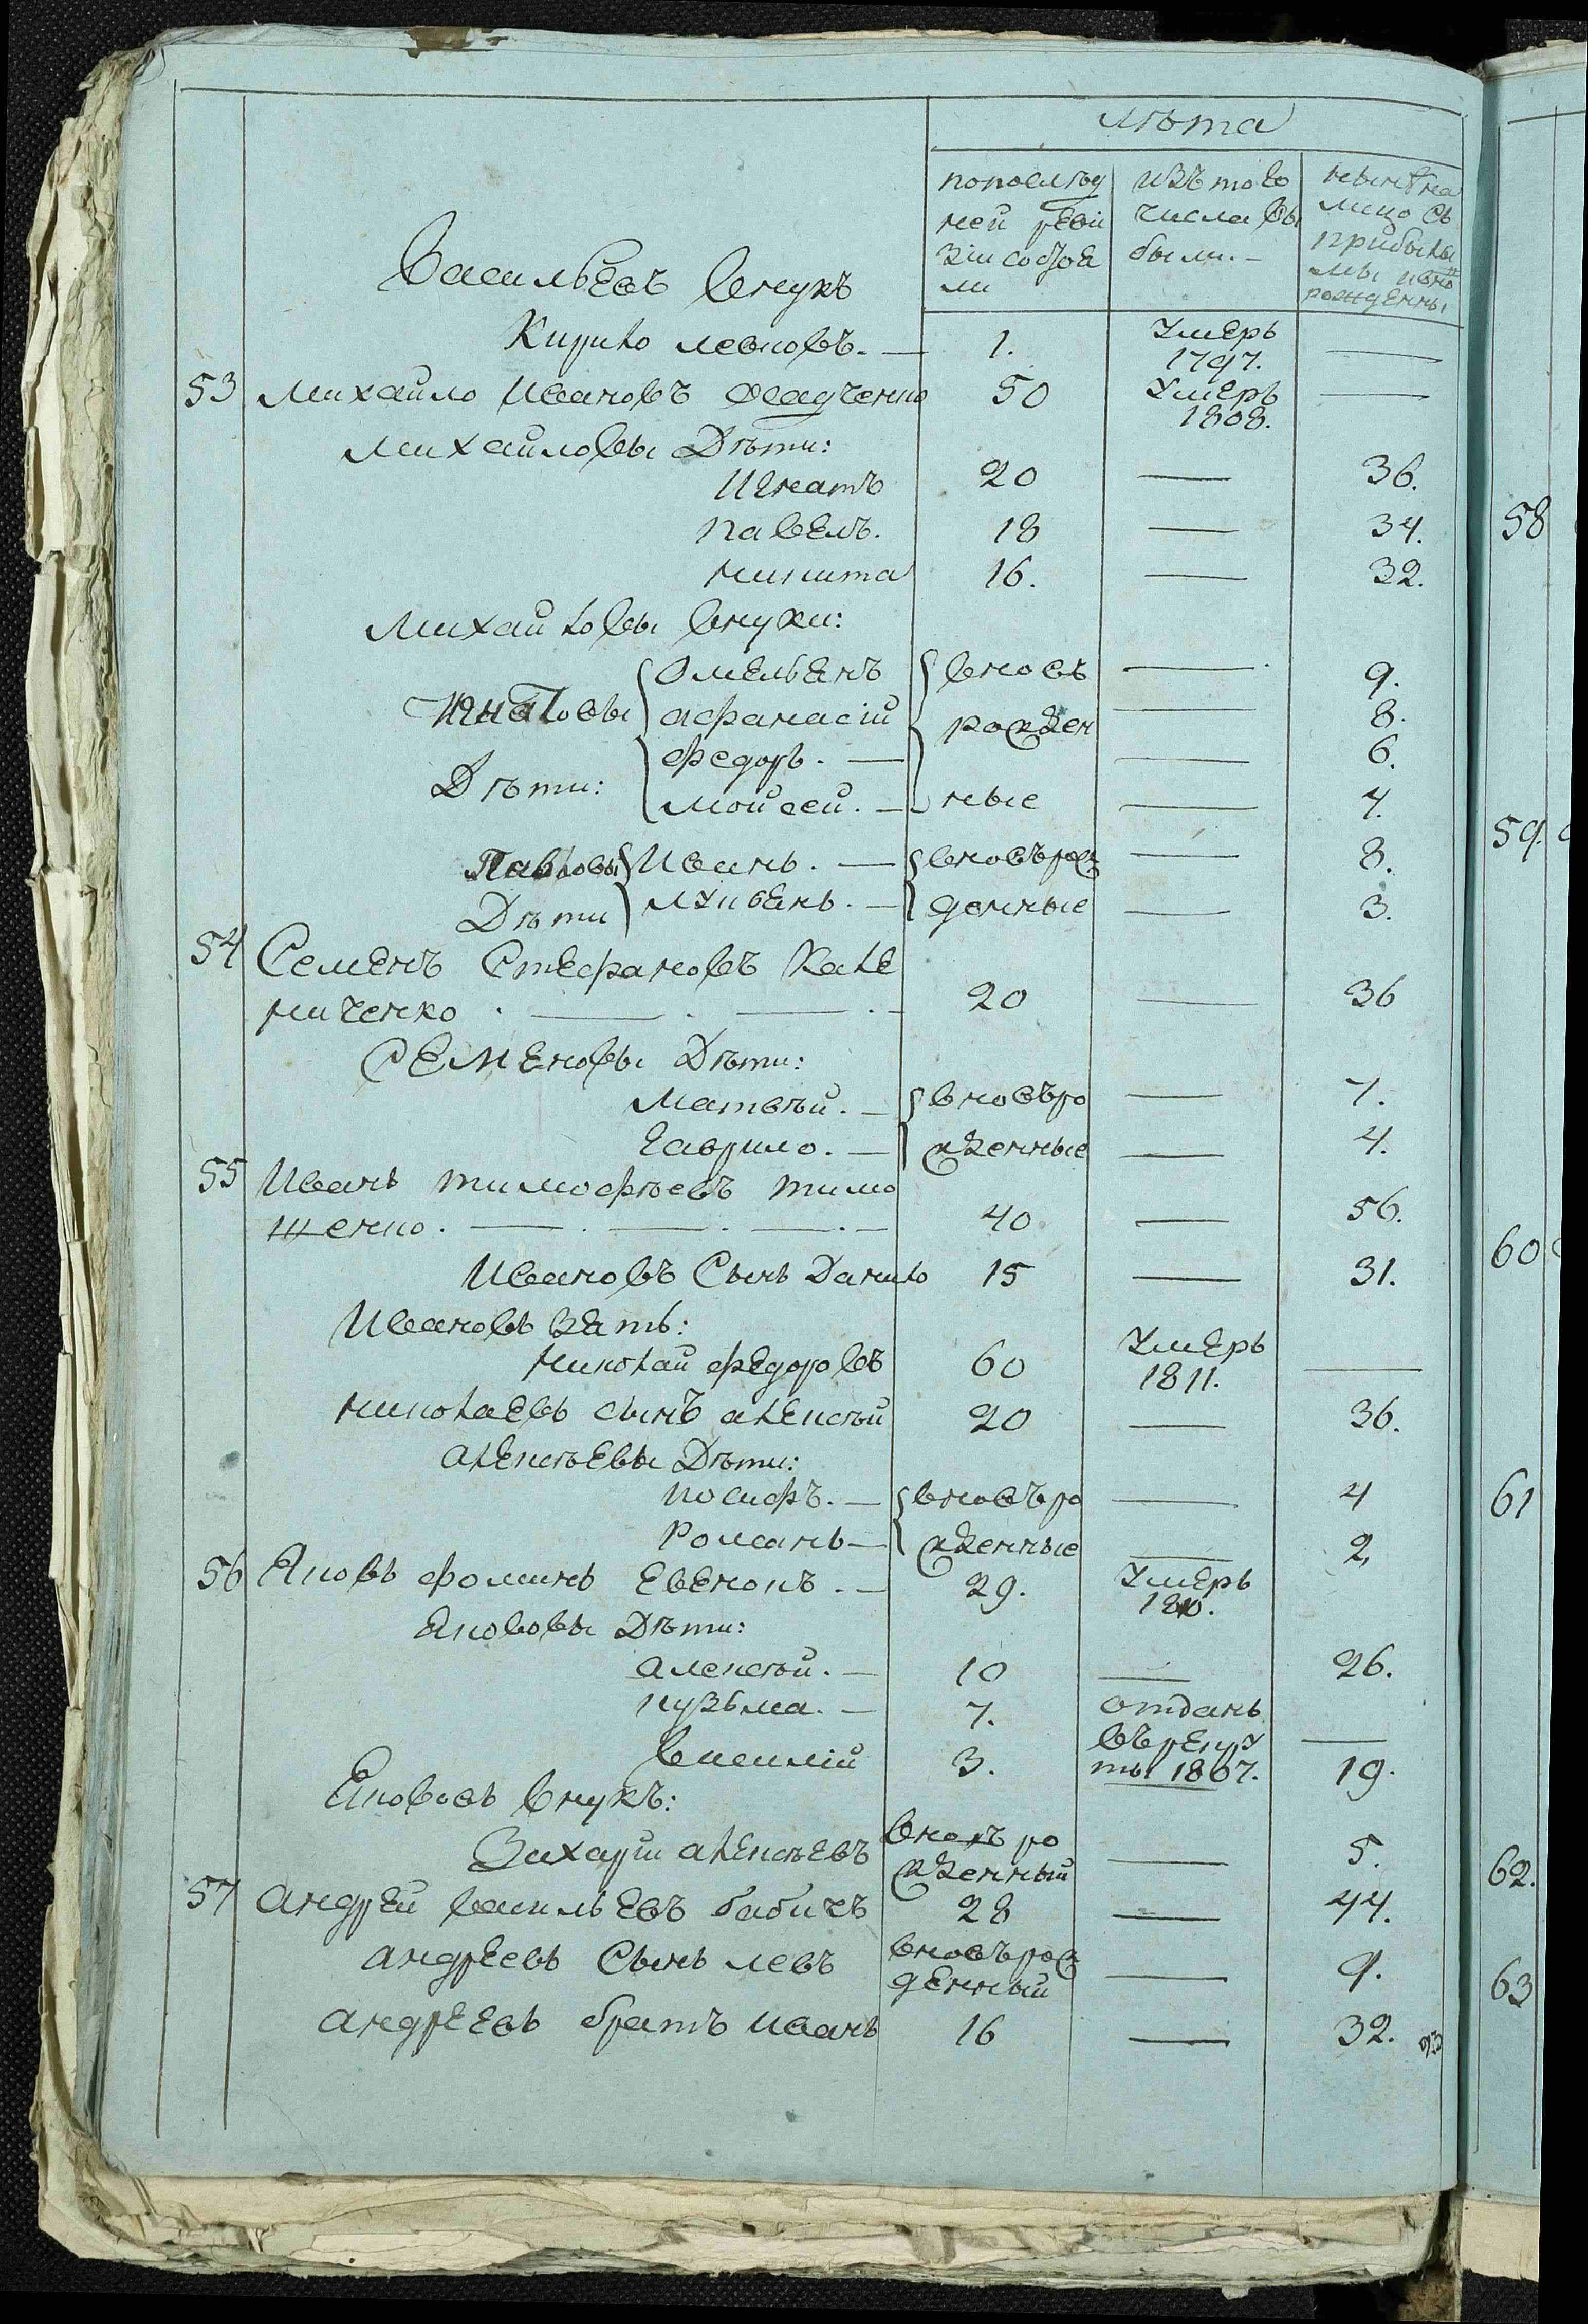 лѣта
попослѣд ней реви зіи состоя ли
изъ того числа вы были. –
нынѣ на лицо съ прибылы ми и вно рожденны
Васильевъ внукъ
Кирило леоновъ. — 1. умеръ 1797. —
53 Михайло Ивановъ 50 умеръ 1808. —
Михайловы Дѣти:
Игнатъ 20 — 36.
павелъ. 18 — 34.
никита 16. — 32.
Михайловы внуки:
Игнатовы Дѣти: { Омельянъ { вновь — 9.
афанасій рожден — 8.
федоръ. — — 6.
мойсей. — ные — 4.
Павловы { Иванъ. — { вновърож — 8.
Дѣти денные — 3.
54 Семенъ Стефановъ Кале
ниченко . — . — . – 20 — 36
Семеновы Дѣти:
Матвѣй. – { вновъро — 7.
гаврило. – жденные — 4.
55 Иванъ тимофѣевъ тимо
шенко . — . — . — . – 40 — 56.
Ивановъ Сынъ Данило 15 — 31.
Ивановъ зять:
николай федоровъ 60 умеръ 1811. —
николаевъ сынъ алексѣй 20 — 36.
алексѣевы Дѣти:
иосифъ. – { вновъро — 4
Романъ – жденные — 2,
56 Яковъ фоминъ 29. умеръ 1810.
Якововы Дѣти:
алексѣй. – 10 — 26.
кузьма. – 7. отданъ въ рекру ты 1807. —
василій 3. 19.
Якововъ внукъ:
Захарій алексѣевъ вновъ ро жденный — 5.
57 андрей васильевъ бабичъ 28 — 44.
андреевъ Сынъ левъ вновърож денный — 9.
андреевъ братъ иванъ 16 — 32.
58
59.
60
61
62.
63